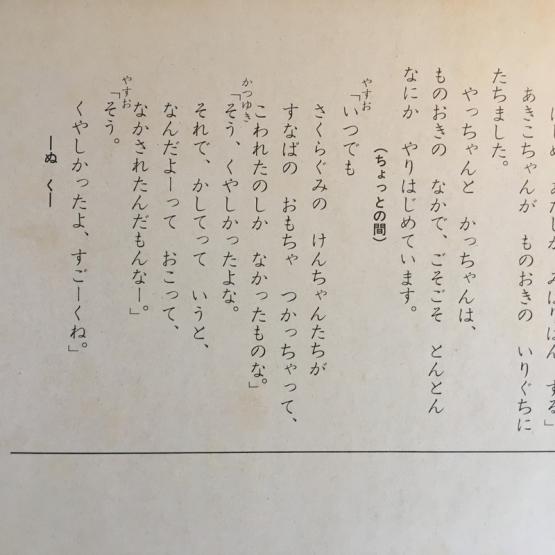 あたしが みはりばん する」
あきこちゃんが ものおきの いりぐちに
たちました。
やっちゃんと かっちゃんは、
ものおきの なかで、ごそごそ とんとん
なにか やりはじめています。
(ちょっとの間)
やすお
「いつでも
さくらぐみの けんちゃんたちが
すなばの おもちゃ つかっちゃって、
こわれたのしか なかったものな。」
かつゆき
「そう、くやしかったよな。
それで、かしてって いうと、
なんだよーって おこって、
なかされたんだもんなー。」
やすお
「そう。
くやしかったよ、すごーくね。」
―ぬ く―